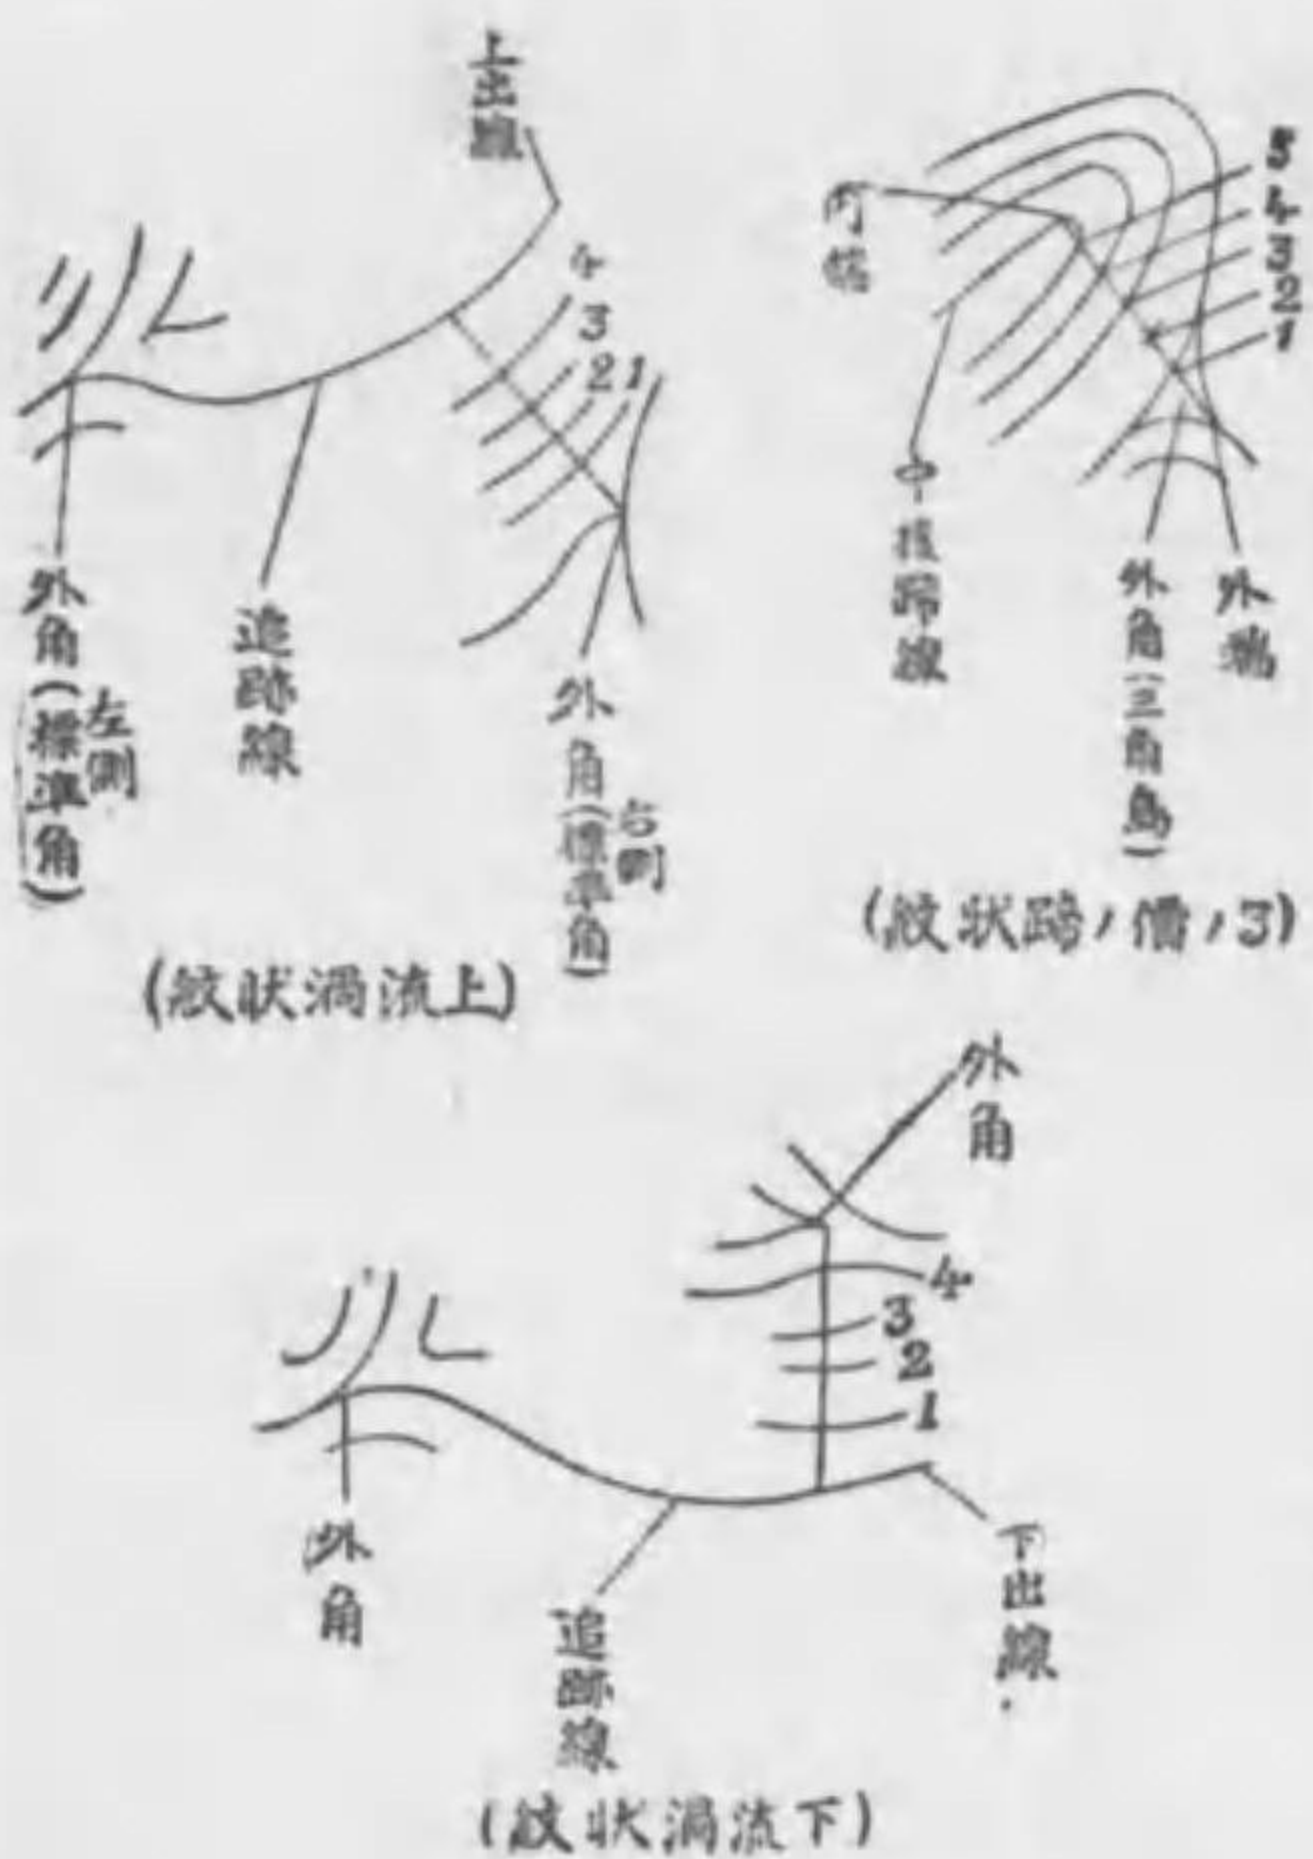 上出線
4
3
2 1
外角(標準角)
左側
追跡線
外角(標準角)
右側
(紋状渦流上)
内端
5
4
3
2
1
中核蹄線
外角(三角島)
外端
(紋状蹄ノ價ノ3)
外角
4
3
2
1
外角
追跡線
下出線
(紋状渦流下)